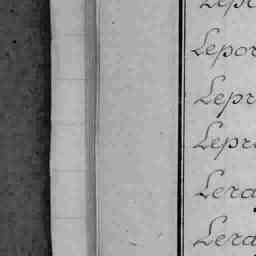 Lepo
Lepor
Lepr
Lepre
Lera
Lera